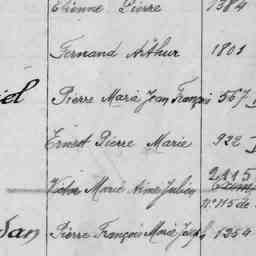 Etienne Pierre 1384
Fernand Arthur 1801
iel Pierre Marie Jean François 567
Ernest Pierre Marie 932
Victor Marie Aimé Julien 2115
n° 115 de
dan Pierre François Marie Joseph 1354